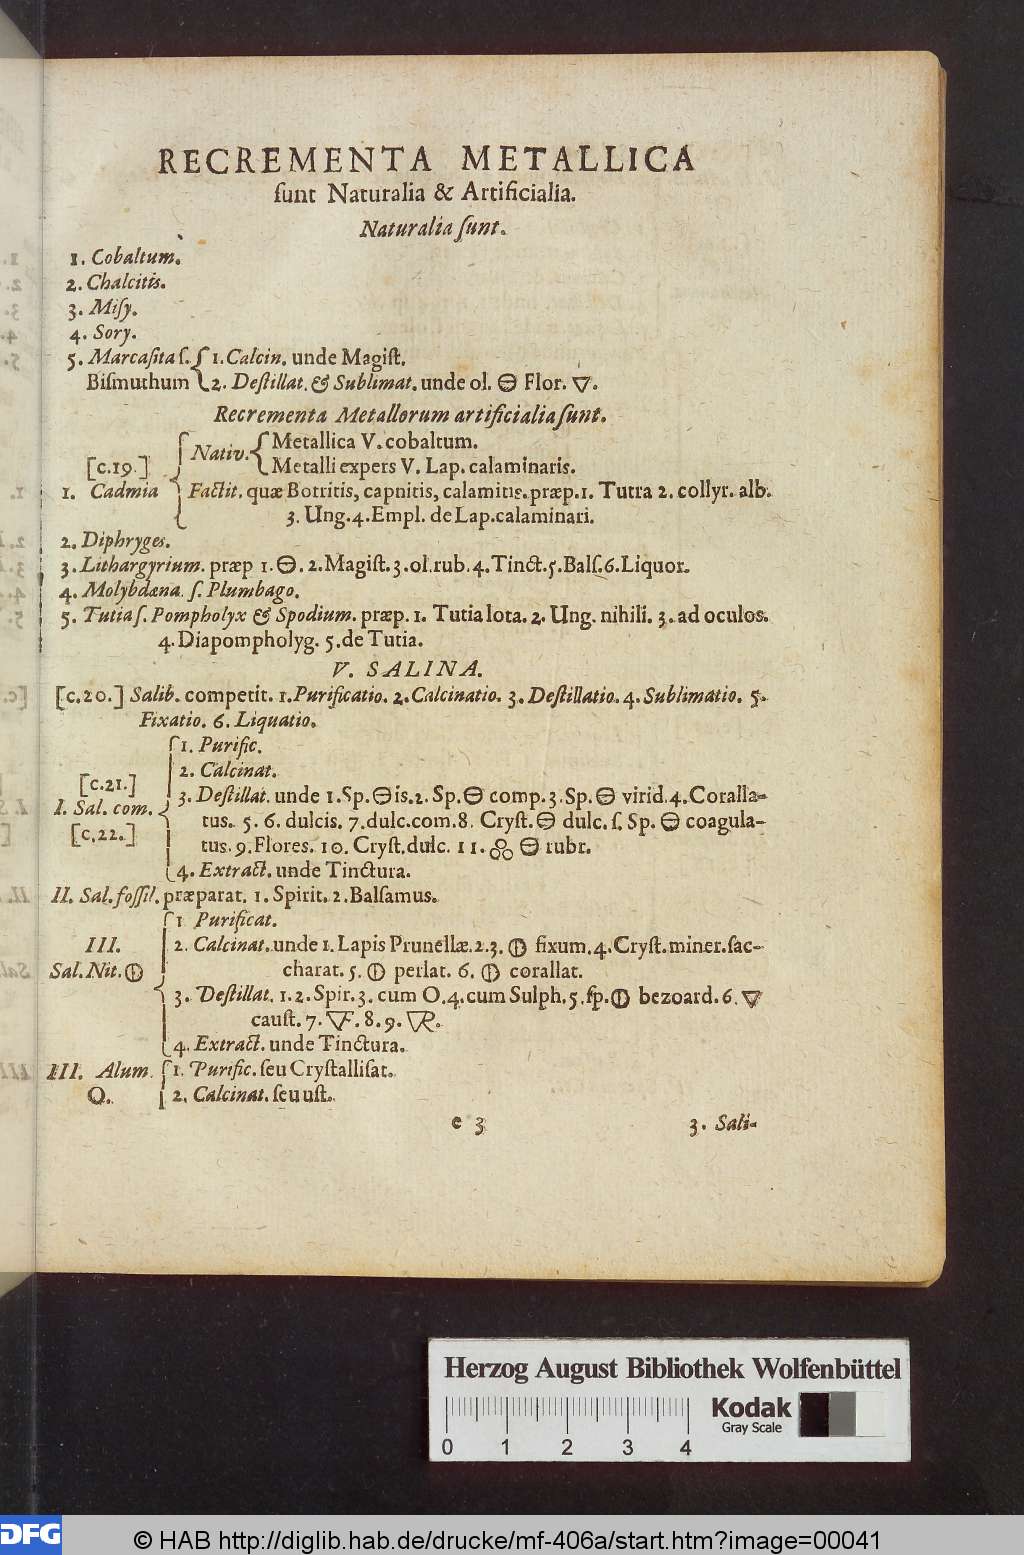 RECREMENTA METALLICA
ſunt Naturalia & Artificialia.
Naturalia ſunt.
1. Cobaltum.
2. Chalcitis.
3. Miſy.
4. Sory.
5. Marcaſita ſ. { 1. Calcin. unde Magiſt.
Biſmuthum { 2. Deſtillat. & Sublimat. unde ol. 🜔 Flor. 🜄.
Recrementa Metallorum artificialia ſunt.
Nativ. { Metallica V. cobaltum.
[c.19.] { Metalli expers V. Lap. calaminaris.
1. Cadmia { Factit. quæ Botritis, capnitis, calamitis. præp. 1. Tutra 2. collyr. alb.
3. Ung. 4. Empl. de Lap. calaminari.
2. Diphryges.
3. Lithargyrium. præp 1. 🜔. 2. Magiſt. 3. ol. rub. 4. Tinct. 5. Balſ. 6. Liquor.
4. Molybdæna. ſ. Plumbago.
5. Tutia ſ. Pompholyx & Spodium. præp. 1. Tutia lota. 2. Ung. nihili. 3. ad oculos.
4. Diapompholyg. 5. de Tutia.
V. SALINA.
[c.20.] Salib. competit. 1. Purificatio. 2. Calcinatio. 3. Deſtillatio. 4. Sublimatio. 5.
Fixatio. 6. Liquatio.
1. Purific.
2. Calcinat.
[c.21.]
3. Deſtillat. unde 1. Sp. 🜔is. 2. Sp. 🜔 comp. 3. Sp. 🜔 virid. 4. Coralla-
I. Sal. com.
tus. 5. 6. dulcis. 7. dulc. com. 8. Cryſt. 🜔 dulc. ſ. Sp. 🜔 coagula-
[c.22.]
tus. 9. Flores. 10. Cryſt. dulc. 11. 🜔 rubr.
4. Extract. unde Tinctura.
II. Sal. foſſil. præparat. 1. Spirit. 2. Balſamus.
1 Purificat.
III.
2. Calcinat. unde 1. Lapis Prunellæ. 2. 3. 🜕 fixum. 4. Cryſt. miner. ſac-
Sal. Nit. 🜕
charat. 5. 🜕 perlat. 6. 🜕 corallat.
3. Deſtillat. 1. 2. Spir. 3. cum O. 4. cum Sulph. 5. ſp. 🜕 bezoard. 6. 🜄
cauſt. 7. 🜅. 8. 9. 🜆.
4. Extract. unde Tinctura.
III. Alum. { 1. Purific. ſeu Cryſtalliſat.
O. { 2. Calcinat. ſeu uſt.
e 3
3. Sali-
Herzog August Bibliothek Wolfenbüttel
0 1 2 3 4
Kodak
Gray Scale
DFG
© HAB http://diglib.hab.de/drucke/mf-406a/start.htm?image=00041